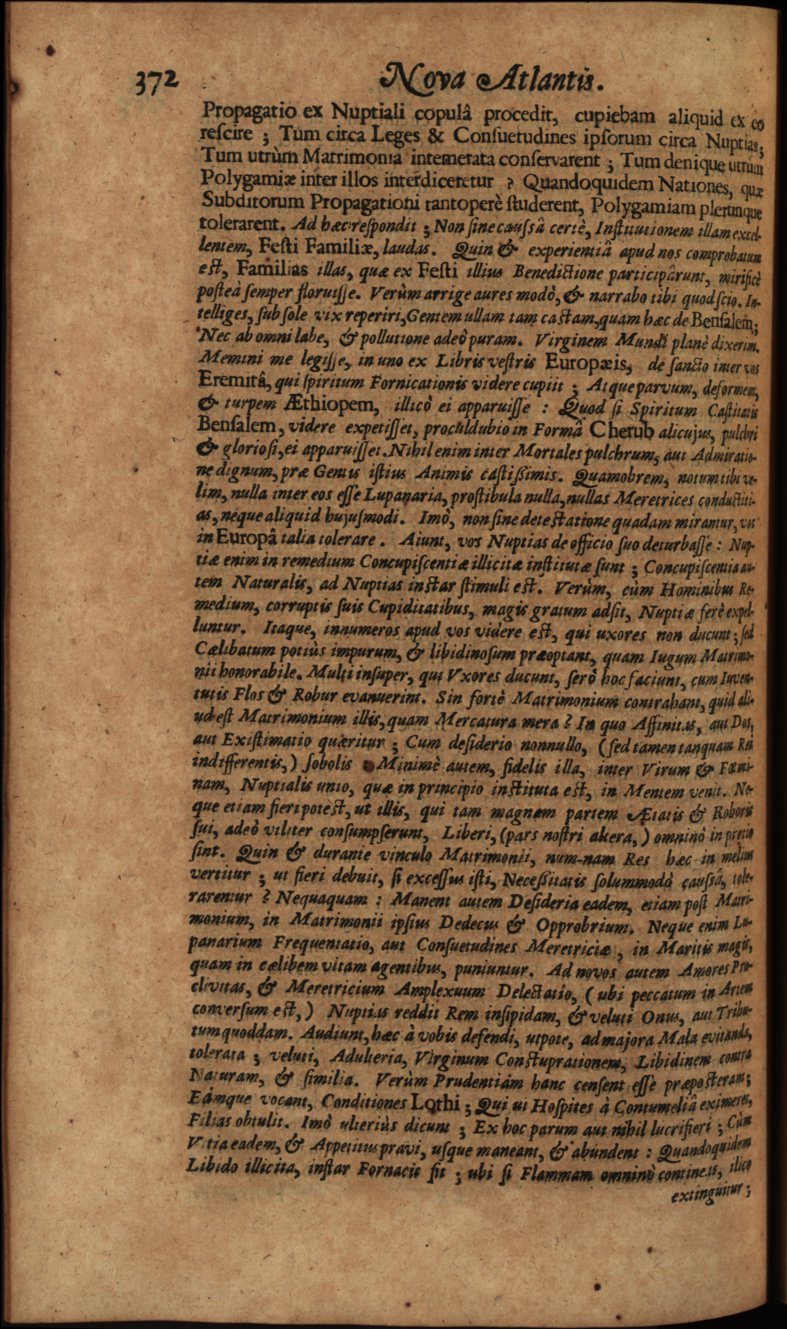 372 Nova Atlantis.
Propagatio ex Nuptiali copulâ procedit, cupiebam aliquid ex eo
rescire ; Tum circa Leges & Consuetudines ipsorum circa Nuptias;
Tum utrùm Matrimonia intemerata conservarent ; Tum denique utrùm
Polygamiæ inter illos interdiceretur ? Quandoquidem Nationes, quæ
Subditorum Propagationi tantoperè studerent, Polygamiam plerunque
tolerarent. Ad hæc respondit ; Non sine caussâ certè, Institutionem illam excel-
lentem, Festi Familiæ, laudas. Quin & experientiâ apud nos comprobatum
est, Familias illas, quæ ex Festi illius Benedictione participârunt, mirificè
posteà semper floruisse. Verùm arrige aures modò, & narrabo tibi quod scio. In-
telliges, sub sole vix reperiri, Gentem ullam tam castam, quam hæc de Bensalem;
Nec ab omni labe, & pollutione adeò puram. Virginem Mundi planè dixerim.
Memini me legisse, in uno ex Libris vestris Europæis, de sancto inter vos
Eremitâ, qui spiritum Fornicationis videre cupiit ; Atque parvum, deformem,
& turpem Æthiopem, illicò ei apparuisse : Quod si Spiritum Castitatis
Bensalem, videre expetisset, proculdubio in Formâ Cherub alicujus, pulchri
& gloriosi, ei apparuisset. Nihil enim inter Mortales pulchrum, aut Admiratio-
ne dignum, præ Gentis istius Animis castißimis. Quamobrem, notum tibi ve-
lim, nulla inter eos esse Lupanaria, prostibula nulla, nullas Meretrices conductiti-
as, neque aliquid hujusmodi. Imò, non sine detestatione quadam mirantur, vos
in Europâ talia tolerare. Aiunt, vos Nuptias de officio suo deturbasse : Nup-
tiæ enim in remedium Concupiscentiæ illicitæ institutæ sunt ; Concupiscentia au-
tem Naturalis, ad Nuptias instar stimuli est. Verùm, cùm Hominibus Re-
medium, corruptis suis Cupiditatibus, magis gratum adsit, Nuptiæ ferè expel-
luntur. Itaque, innumeros apud vos videre est, qui uxores non ducunt ; sed
Cælibatum potiùs impurum, & libidinosum præoptant, quam Iugum Matrimo-
nii honorabile. Multi insuper, qui Vxores ducunt, serò hoc faciunt, cum Iuven-
tutis Flos & Robur evanuerint. Sin fortè Matrimonium contrahant, quid ali-
ud est Matrimonium illis, quam Mercatura mera ? In quo Affinitas, aut Dos,
aut Existimatio quæritur ; Cum desiderio nonnullo, (sed tamen tanquam Rei
indifferentis,) sobolis Minimè autem, fidelis illa, inter Virum & Fœmi-
nam, Nuptialis unio, quæ in principio instituta est, in Mentem venit. Ne-
que etiam fieri potest, ut illis, qui tam magnam partem Ætatis & Roboris
sui, adeò viliter consumpserunt, Liberi, (pars nostri altera,) omninò in pretio
sint. Quin & durante vinculo Matrimonii, num-nam Res hæc in melius
vertitur ; ut fieri debuit, si excessus isti, Neceßitatis solummodò caussâ, tole-
rarentur ? Nequaquam : Manent autem Desideria eadem, etiam post Matri-
monium, in Matrimonii ipsius Dedecus & Opprobrium. Neque enim Lu-
panarium Frequentatio, aut Consuetudines Meretriciæ, in Maritis magis,
quam in cælibem vitam agentibus, puniuntur. Ad novos autem Amores Pro-
clivitas, & Meretricium Amplexuum Delectatio, (ubi peccatum in Artem
conversum est,) Nuptias reddit Rem insipidam, & veluti Onus, aut Tribu-
tum quoddam. Audiunt, hæc à vobis defendi, utpote, ad majora Mala evitanda,
tolerata ; veluti, Adulteria, Virginum Constuprationem, Libidinem contra
Naturam, & similia. Verùm Prudentiam hanc censent esse præposteram;
Eámque vocant, Conditiones Lothi ; Qui ut Hospites à Contumeliâ eximeret,
Filias obtulit. Imò ulteriùs dicunt ; Ex hoc parum aut nihil lucrifieri ; Cùm
Vitia eadem, & Appetitus pravi, usque maneant, & abundent : Quandoquidem
Libido illicita, instar Fornacis sit ; ubi si Flammam omninò contineas, ilicò
extinguitur ;